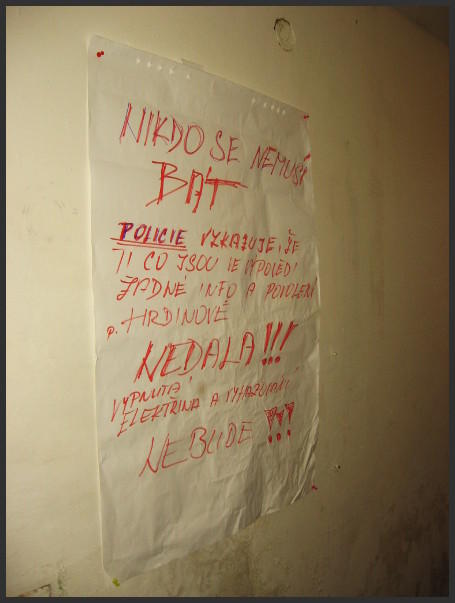 NIKDO SE NEMUSÍ
BÁT
POLICIE VZKAZUJE, ŽE
TI CO JSOU VE VÝPOLEDI
ŽÁDNÉ INFO A POVOLENÍ
p. HRDINOVÉ
NEDALA!!!
VYPNUTÁ
ELEKTŘINA A VYHAZOVÁNÍ
NEBUDE !!!